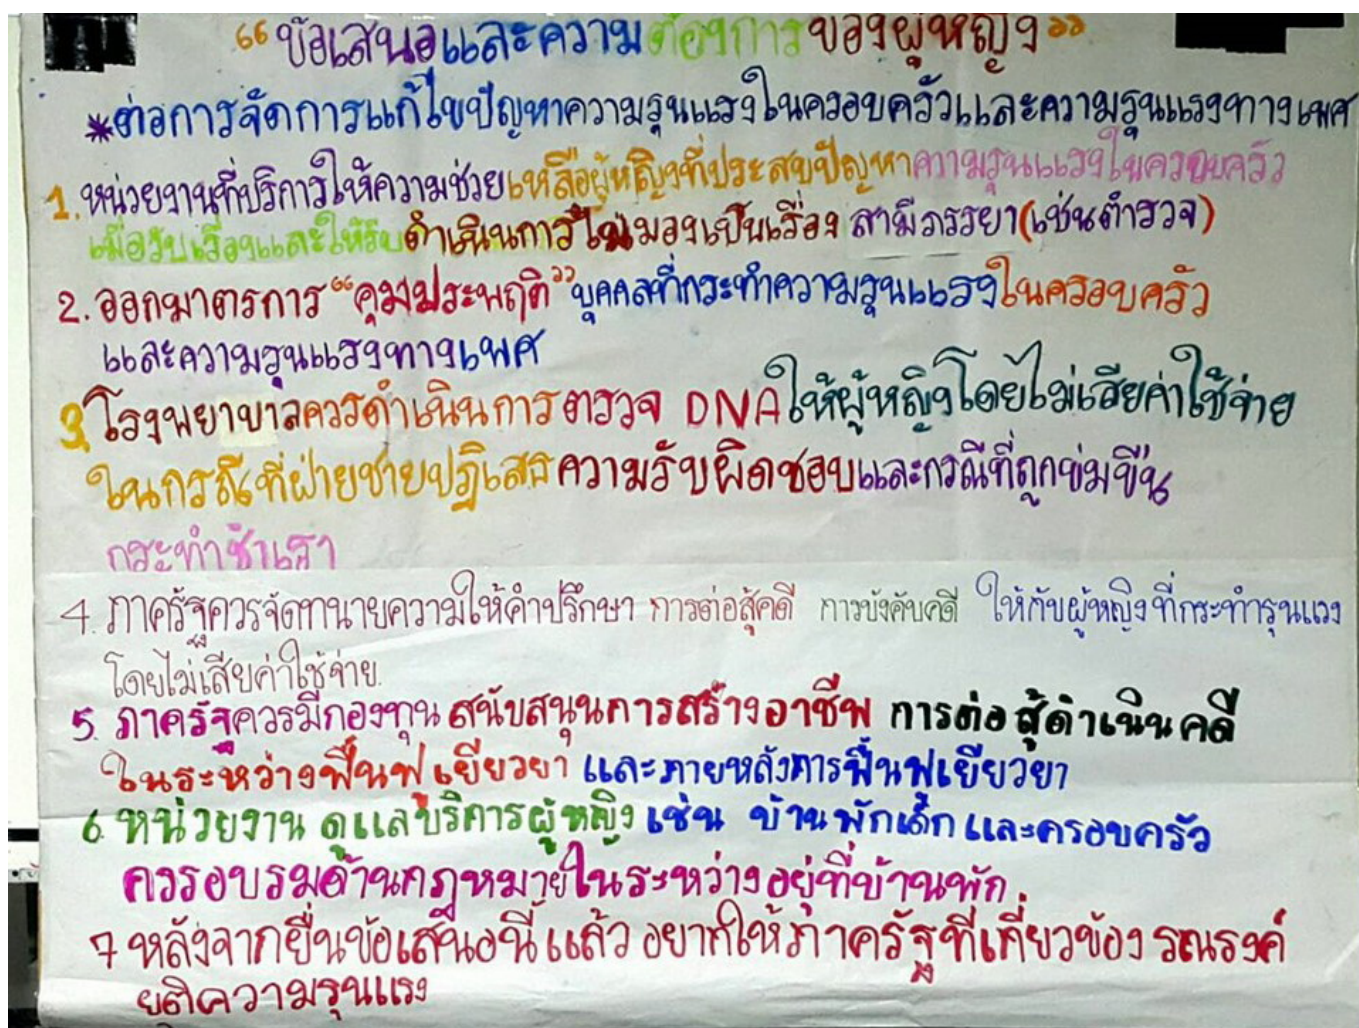 “ข้อเสนอและความต้องการของผู้หญิง”
*ต่อการจัดการแก้ไขปัญหาความรุนแรงในครอบครัวและความรุนแรงทางเพศ
1. หน่วยงานที่บริการให้ความช่วยเหลือผู้หญิงที่ประสบปัญหาความรุนแรงในครอบครัว
เมื่อรับเรื่องและให้รีบดำเนินการไม่มองเป็นเรื่อง สามีภรรยา(เช่นตำรวจ)
2. ออกมาตรการ “คุมประพฤติ” บุคคลที่กระทำความรุนแรงในครอบครัว
และความรุนแรงทางเพศ
3. โรงพยาบาลควรดำเนินการ ตรวจ DNA ให้ผู้หญิงโดยไม่เสียค่าใช้จ่าย
ในกรณีที่ฝ่ายชายปฏิเสธความรับผิดชอบและกรณีที่ถูกข่มขืน
กระทำชำเรา
4. ภาครัฐควรจัดทนายความให้คำปรึกษา การต่อสู้คดี การบังคับคดี ให้กับผู้หญิง ที่กระทำรุนแรง
โดยไม่เสียค่าใช้จ่าย.
5. ภาครัฐควรมีกองทุน สนับสนุนการสร้างอาชีพ การต่อสู้ดำเนินคดี
ในระหว่างฟื้นฟู เยียวยา และภายหลังการฟื้นฟูเยียวยา
6. หน่วยงาน ดูแลบริการผู้หญิง เช่น บ้านพักเด็กและครอบครัว
ควรอบรมด้านกฎหมายในระหว่างอยู่ที่บ้านพัก
7 หลังจากยื่นข้อเสนอนี้แล้ว อยากให้ภาครัฐที่เกี่ยวข้อง รณรงค์
ยุติความรุนแรง